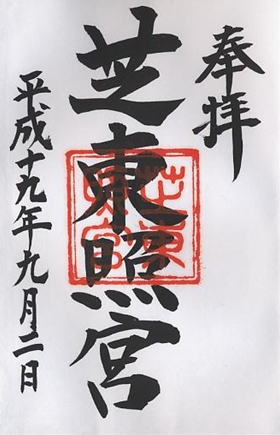 奉拝
芝東照宮
芝東
照宮
平成十九年九月二日